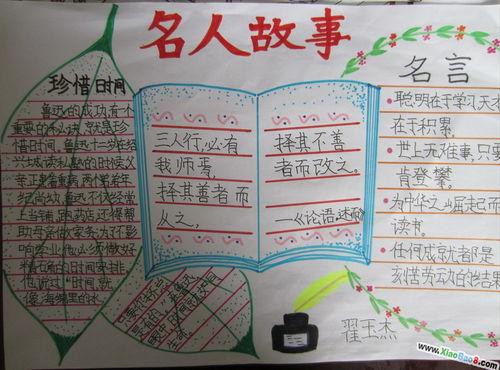 名人故事
珍惜时间
鲁迅的成功,有个
重要的秘诀,就是珍
惜时间。鲁迅十二岁在绍
兴城读私塾的时候,父
亲正患着重病,两个弟弟年
纪尚幼,鲁迅不仅经常
上当铺,跑药店,还得帮
助母亲做家务;为不影
响学业,他必须做好
精确的时间安排。
他说过:"时间,就
像海绵里的水
三人行,必有
我师焉,
择其善者而
从之,
择其不善
者而改之。
—《论语·述而》
名言
聪明在于学习,天才
在于积累。
世上无难事,只要
肯登攀。
为中华之崛起而
读书。
任何成就都是
刻苦劳动的结果
翟玉杰
www.XiaoBao8.com